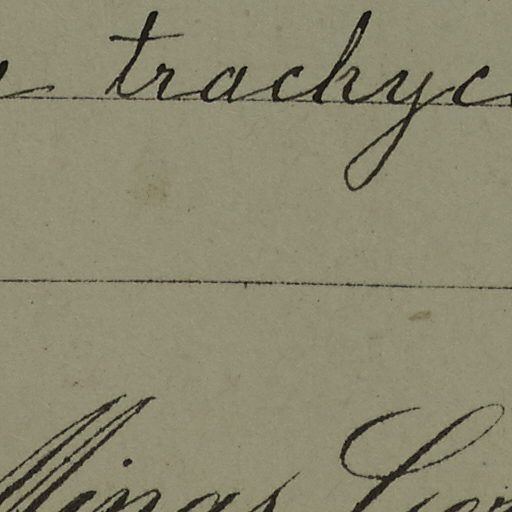 trachyc
Minas Ger